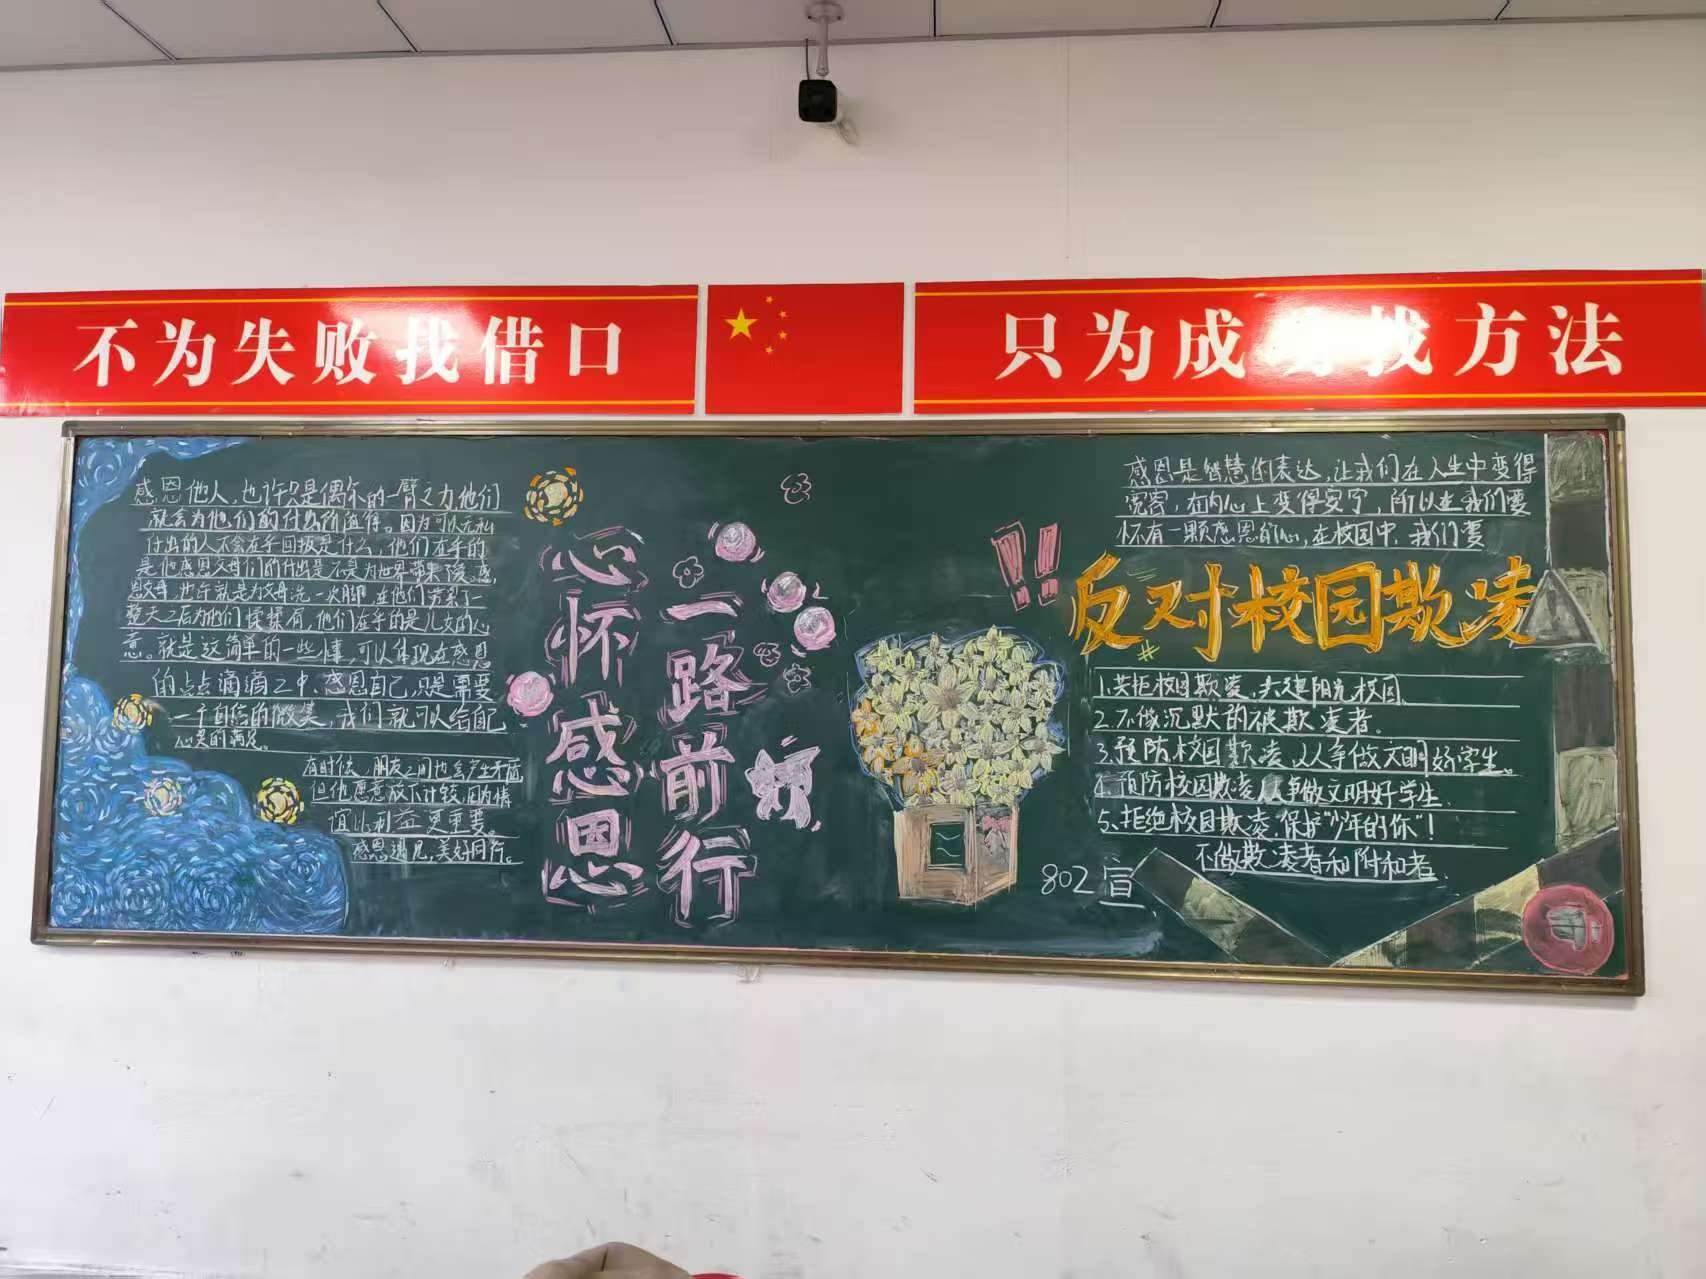 不为失败找借口
只为成功找方法
感恩他人,也许只是偶尔的一臂之力,他们
就会为他们的付出所值得。因为可以无私
付出的人不会在乎回报是什么,他们在乎的
是他感恩父母们的付出是不是为世界带来
父母,也许就是为父母洗一次脚,在他们劳累了一
整天之后为他们揉揉肩,他们在乎的是儿女的心
意。就是这简单的一些小事,可以体现在感恩
的点点滴滴之中,感恩自己,只是需要
一个自信的微笑,我们就可以给自己
有时候,朋友之间也会产生矛盾
但他愿意放下计较,因为情
谊比利益更重要。
感恩遇见,美好同行。
心怀感恩
一路前行
感恩是智慧的表达,让我们在人生中变得
宽容,在内心上变得安宁,所以在我们要
怀有一颗感恩的心,在校园中,我们要
反对校园欺凌
1.共拒校园欺凌,共建阳光校园.
2.不做沉默的被欺凌者.
3.预防校园欺凌,人人争做文明好学生。
4.预防校园欺凌,争做文明好学生.
5.拒绝校园欺凌,保护“少年的你”!
不做欺凌者和附和者.
802宣